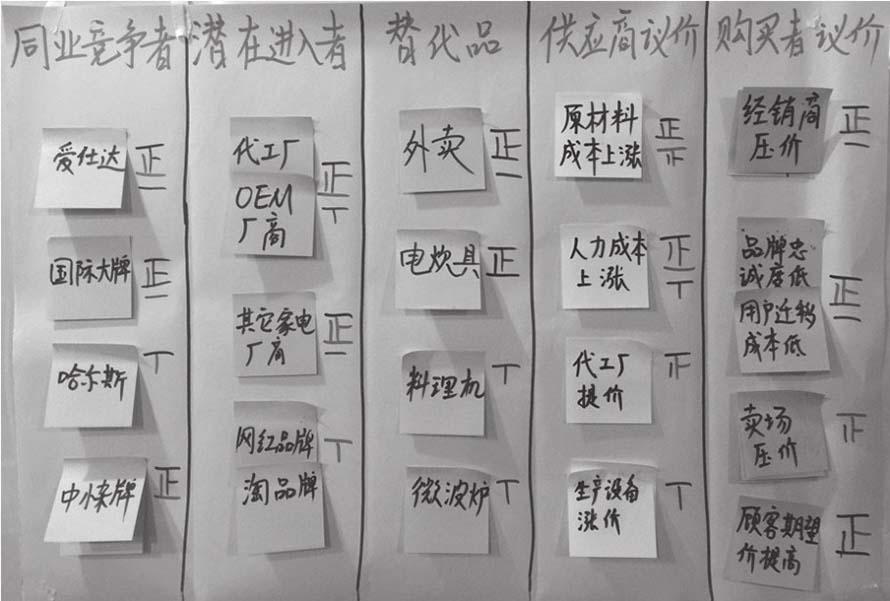 同业竞争者
爱仕达
正一
国际大牌
正一
哈尔斯
丅
中小杂牌
正
潜在进入者
代工厂
OEM
厂商
正丅
其它家电
厂商
正一
网红品牌
淘品牌
丅
替代品
外卖
正一
电炊具
正
料理机
丅
微波炉
丅
供应商议价
原材料
成本上涨
正
人力成本
上涨
正丅
代工厂
提价
生产设备
涨价
丅
购买者议价
经销商
压价
正一
品牌忠
诚度低
用户迁移
成本低
正一
卖场
压价
顾客期望
价提高
正